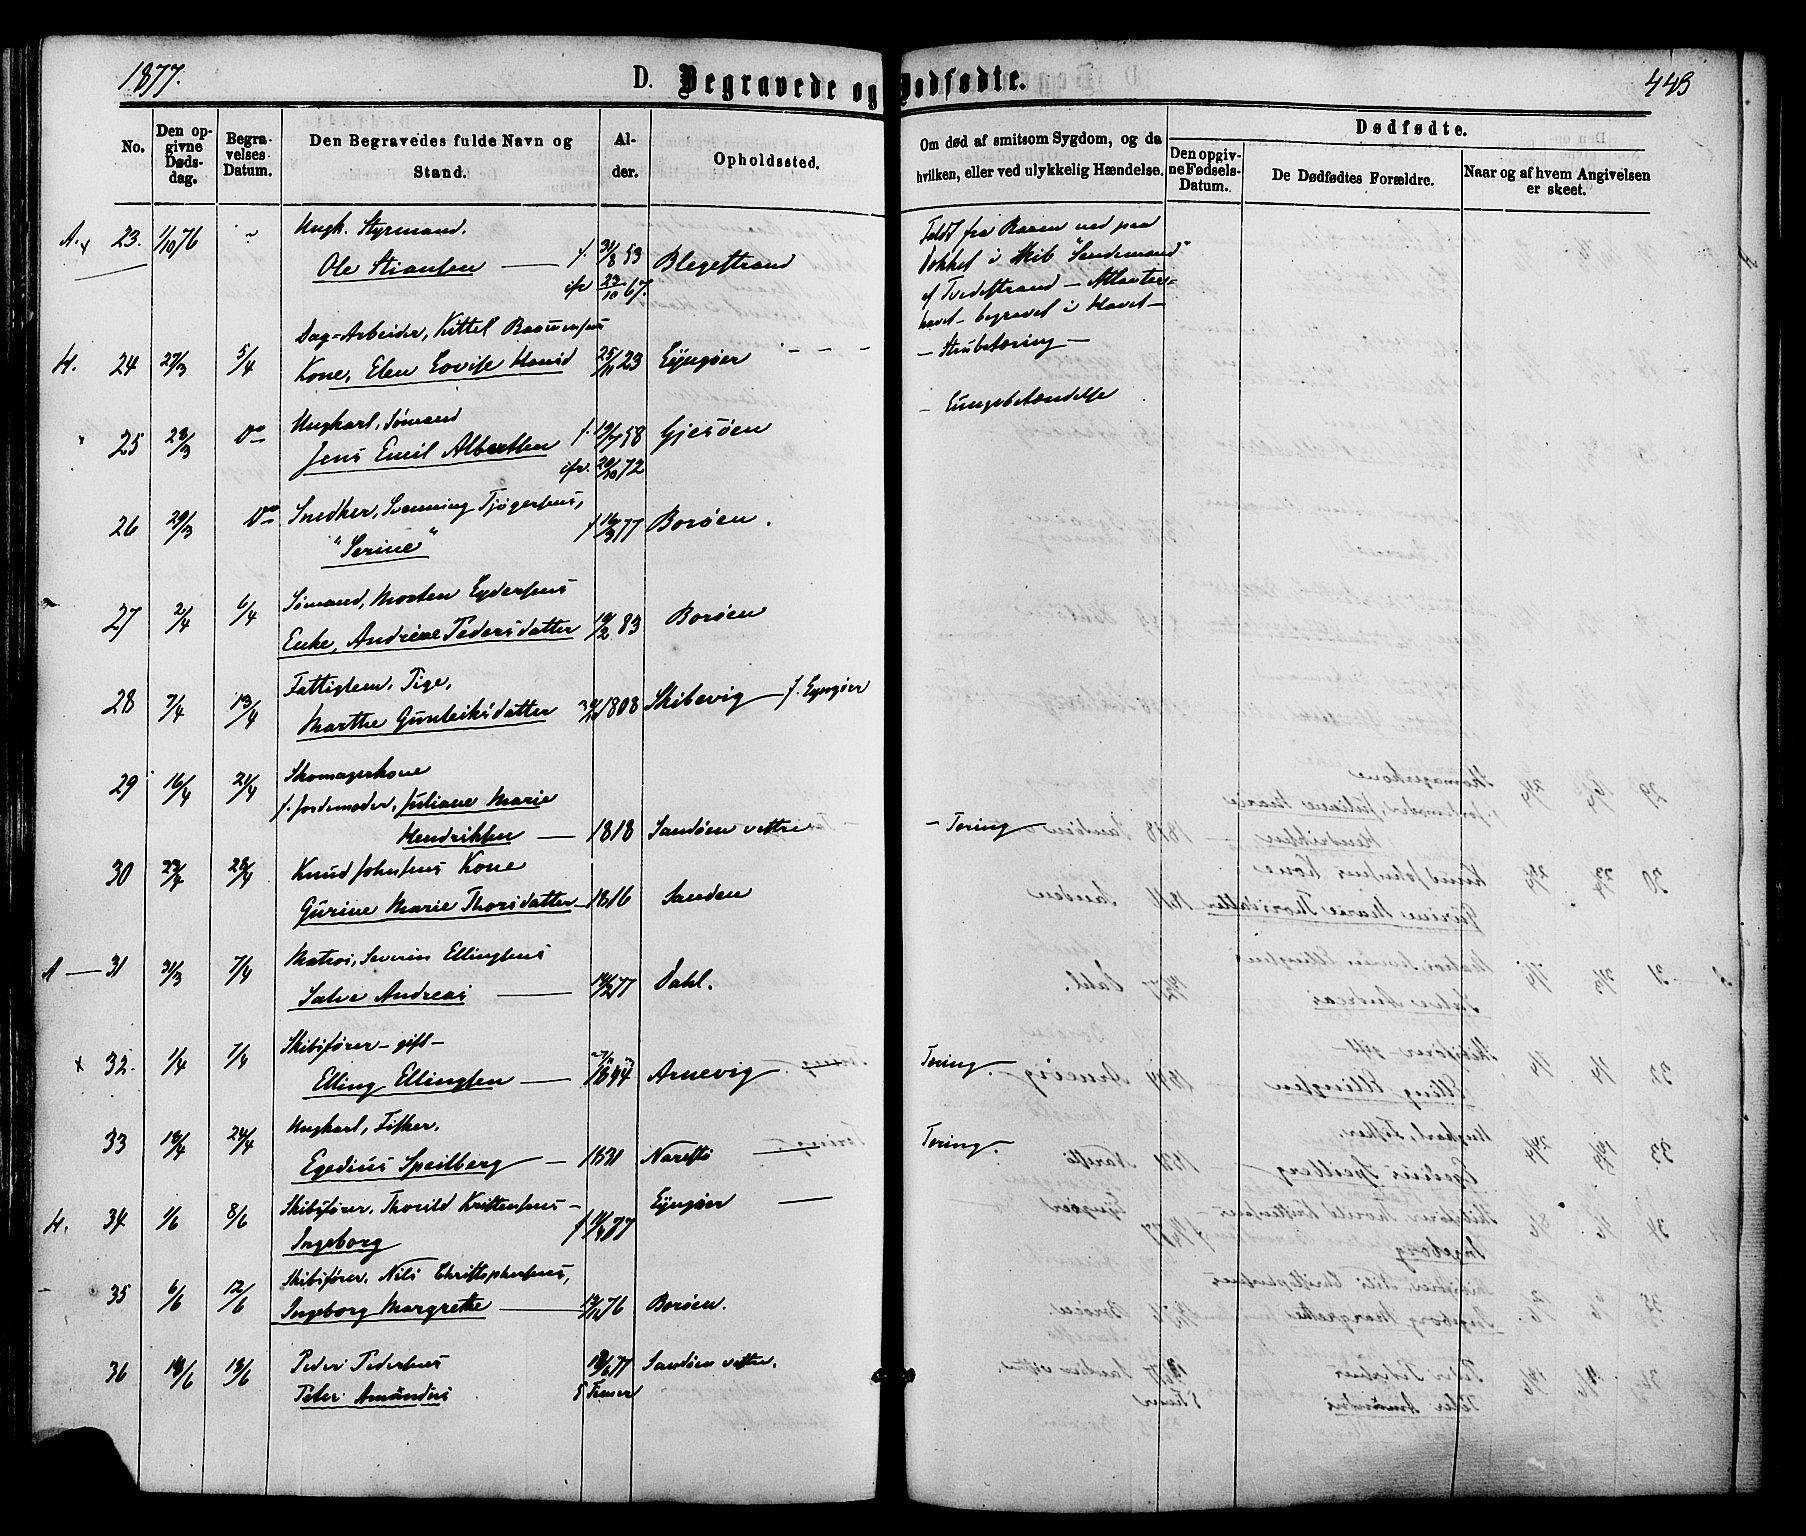 1877.
D. Begravede og Dødfødte.
443
No.
Den opgivne Dødsdag.
Begravelses Datum.
Den Begravedes fulde Navn og Stand.
Alder.
Opholdssted.
Om død af smitsom Sygdom, og da hvilken, eller ved ulykkelig Hændelse.
Dødfødte.
Den opgivne Fødsels-Datum.
De Dødfødtes Forældre.
Naar og af hvem Angivelsen er skeet.
23. 1/10 76 Ungk. Styrmand.
Ole Stiansen — f. 31/8 53 Blegestrand
23/10 67.
Feldt fra Raaen ned paa
Dækket i Skib "Sandemand"
af Tvedestrand — Atlanter-
havet — begravet i Havet —
H. 24 27/3 5/4 Dag-Arbeider, Kittel
Kone, Elen Lovise 25/11 23 Lyngøer
25 28/3 Do Ungkarl, Sømand
— Lungebetændelse
Jens Emil Albertsen f. 19/7 58 Gjesøen
20/10 72
26 29/3 Do Snedker, Svenning Tjøgersens,
"Serine" f. 16/3 77 Borøen.
27 2/4 6/4 Sømand, Morten
Enke, Andrine Pedersdatter 19/2 83 Borøen
28 7/4 13/4 Fattiglem, Pige,
Marthe Gunleiksdatter 1808 Skibevig — f. Lyngøer
29 16/4 21/4 Skomagerkone
f. Jordemoder, Juliane Marie
Hendriksen — 1818 Sandøen vestre — Tæring —
30 23/4 28/4 Knud Johnsens Kone
Gurine Marie Thorsdatter — 1816 Sanden
A — 31 31/3 7/4 Matros, Severin Ellingsens
Salve Andreas — 14/2 77 Dahl.
x 32. 1/4 7/4 Skibsfører — gift —
Elling Ellingsen — 1844 Arnevig — Tæring.
33 18/4 24/4 Ungkarl, Fisker.
Egedius Speilberg — 1831 Narestø — Tæring.
H. 34 1/6 8/6 Skibsfører, Thorild Kristensens —
Ingeborg f. 77 Lyngøer —
35 6/6 12/6 Skibsfører, Nils Christophersens,
Ingeborg Margrethe — 76 Borøen.
36 18/6 18/6 Peder Pedersens 18/6 77 Sandøen vestre.
Peter Amandus 8 Timer